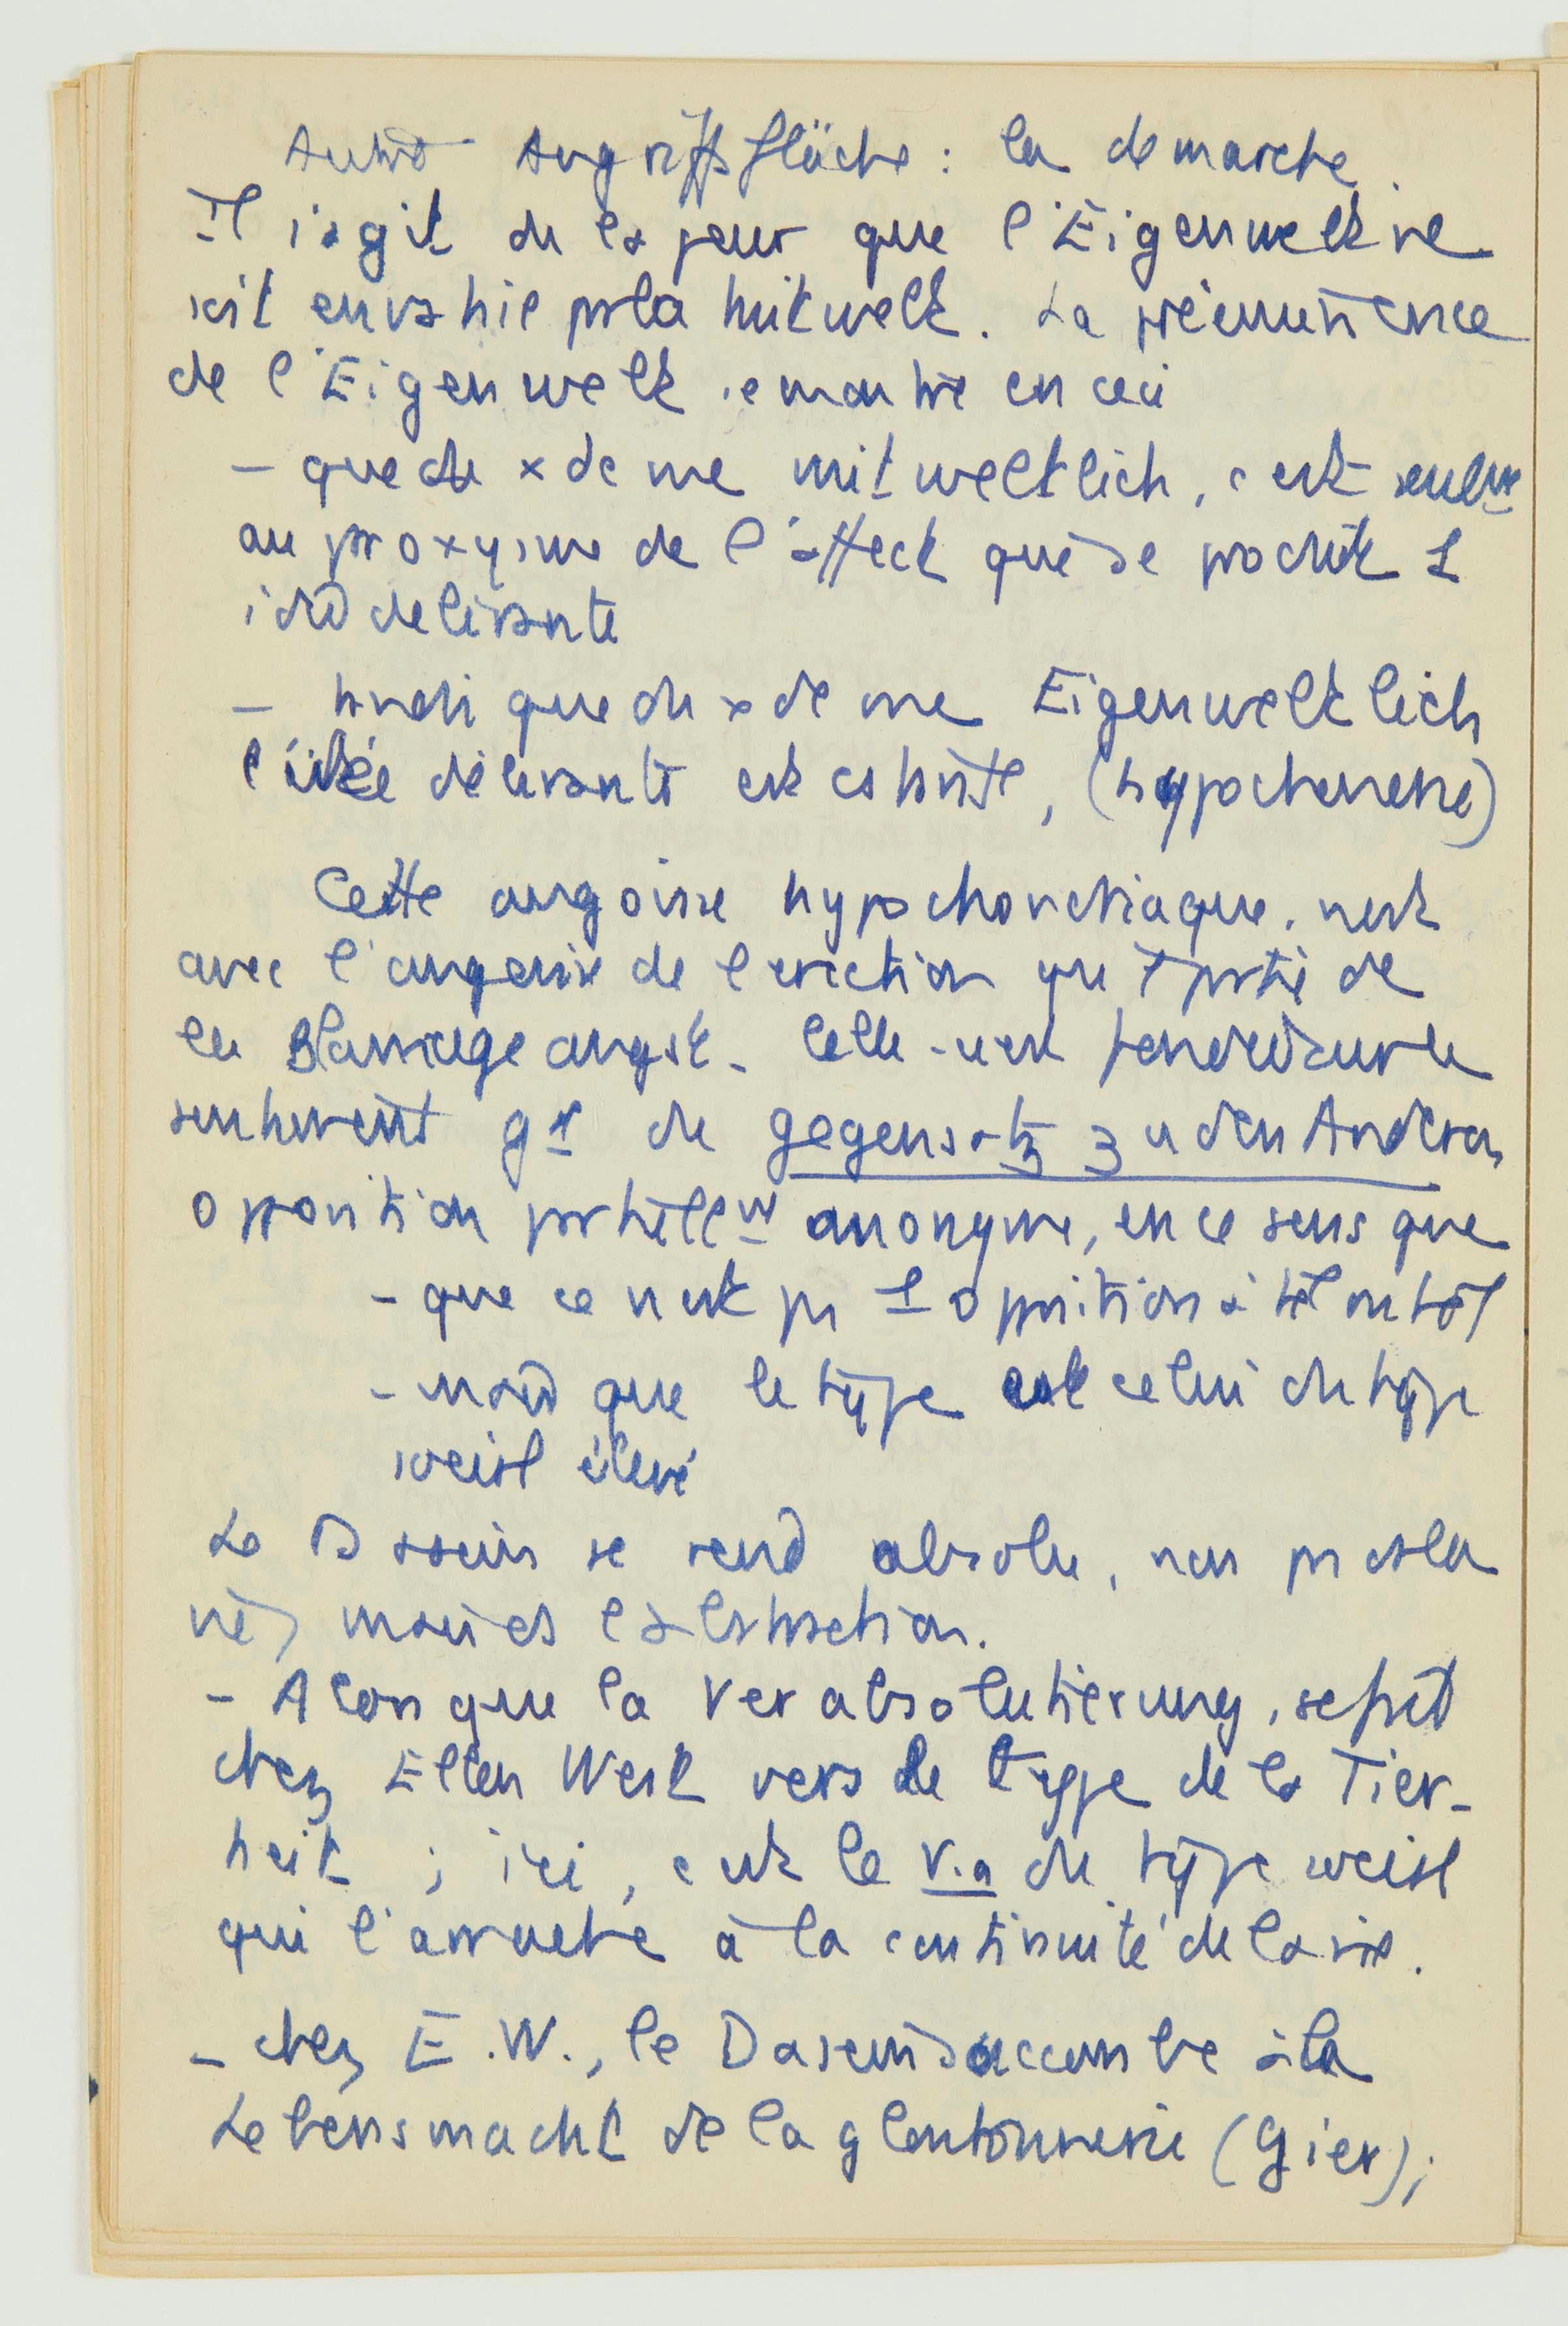 Autre Angriffsfläche : la demarche.
Il s'agit de la peur que l'Eigenwelt ne
soit envahie par la Mitwelt. La prééminence
de l'Eigenwelt se montre en ceci
- que du x de me mitweltlich, c'est seulmt
au paroxysme de l'affect que se produit 1
idée delirante
- tandis que du x de me Eigenweltlich
l'idée délirante est cstante, (hypochondrie)
Cette angoisse hypochondriaque, n'est
avec l'angoisse de l'erection qu'1 partie de
la Blamage angst. Celle-ci est
gl de gegensatz zu den Anderen,
opposition partiellmt anonyme, en ce sens que
- que ce n'est pas 1 opposition à tel ou tel
- mais que le type est celui du type
social élevé
Le Dasein se rend absolu, non pas ds la
vie, mais ds l'abstraction.
- Alors que la Verabsolutierung, se fait
chez Ellen West vers le type de la Tier-
heit ; ici, c'est le V.a du type social
qui l'arrache à la continuité de la vie.
- chez E.W., le Dasein succombe à la
Lebensmacht de la gloutonnerie (Gier) ;